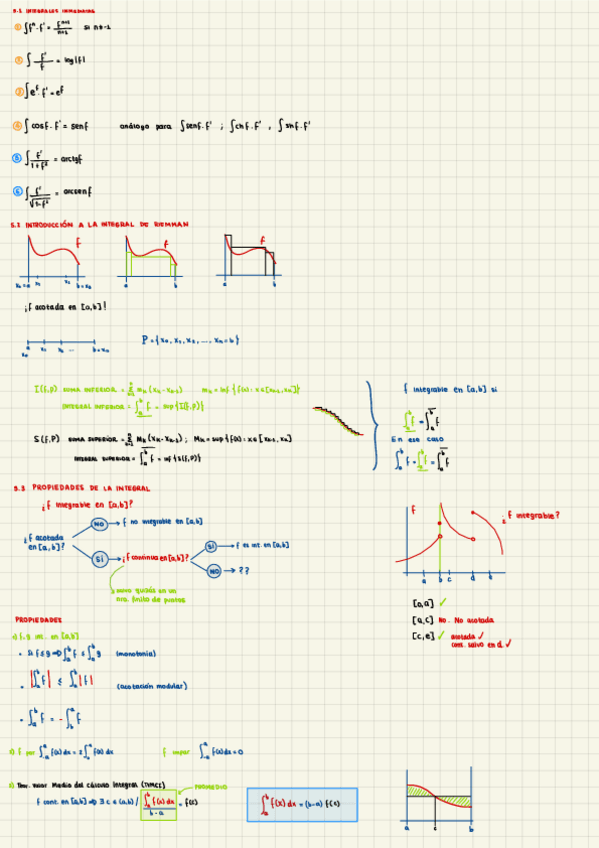 5.1 INTEGRALES INMEDIATAS
① ∫fⁿ·f' = fⁿ⁺¹/n+1 si n≠-1
② ∫ f'/f = log|f|
③ ∫e^f·f' = e^f
④ ∫cosf·f' = senf análogo para ∫senf·f' ; ∫chf·f' , ∫shf·f'
⑤ ∫ f'/1+f² = arctgf
⑥ ∫ f'/√1-f² = arcsenf
5.2 INTRODUCCIÓN A LA INTEGRAL DE RIEMMAN
f f f
x₀=a x₁ x₂ b=x₃ a b a b
¡f acotada en [a,b]!
a x₁ x₂ ... b=xₙ
x₀
P={x₀, x₁, x₂, ..., xₙ=b}
I(f,P) SUMA INFERIOR = Σ mₖ(xₖ-xₖ₋₁) mₖ=inf{f(x): x∈[xₖ₋₁,xₖ]}
INTEGRAL INFERIOR = ∫ₐᵇ f = sup{I(f,P)}
S(f,P) SUMA SUPERIOR = Σ Mₖ(xₖ-xₖ₋₁) ; Mₖ=sup{f(x): x∈[xₖ₋₁,xₖ]
INTEGRAL SUPERIOR = ∫ₐᵇ f = inf{S(f,P)}
f integrable en [a,b] si
∫ₐᵇ f = ∫ₐᵇ f
En ese caso
∫ₐᵇ f = ∫ₐᵇ f = ∫ₐᵇ f
5.3 PROPIEDADES DE LA INTEGRAL
¿f integrable en [a,b]?
¿f acotada en [a,b]?
NO → f no integrable en [a,b]
SÍ → ¿f continua en [a,b]?
SÍ → f es int. en [a,b]
NO → ??
salvo quizás en un
nro. finito de puntos
f ¿f integrable?
a b c d e
[a,a] ✓
[a,c] No. No acotada
[c,e] ✓ acotada ✓
cont. salvo en d. ✓
PROPIEDADES
f,g int. en [a,b]
• Si f≤g ⇒ ∫ₐᵇ f ≤ ∫ₐᵇ g (monotonía)
• |∫ₐᵇ f| ≤ ∫ₐᵇ |f| (acotación modular)
• ∫ₐᵇ f = -∫ᵇₐ f
f par ∫₋ₐᵃ f(x)dx = 2∫₀ᵃ f(x)dx f impar ∫₋ₐᵃ f(x)dx=0
Tma. Valor Medio del cálculo Integral (TVMCI)
PROMEDIO
f cont. en [a,b] ⇒ ∃ c ∈ (a,b) / ∫ₐᵇ f(x)dx / b-a = f(c)
∫ₐᵇ f(x) dx = (b-a) f(c)
a c b